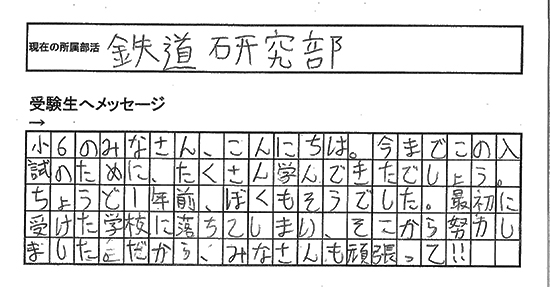 現在の所属部活 鉄道研究部
受験生へメッセージ
→
小6のみなさん、こんにちは。今までこの入
試のために、たくさん学んできたでしょう。
ちょうど1年前、ぼくもそうでした。最初に
受けた学校に落ちてしまい、そこから努力し
ました。だから、みなさんも頑張って!!